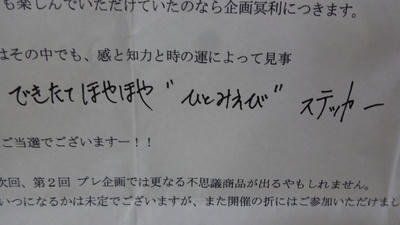 も楽しんでいただけていたのなら企画冥利につきます。
はその中でも、感と知力と時の運によって見事
できたてほやほや"ひとみえび" ステッカー
ご当選でございますー！！
次回、第２回 プレ企画では更なる不思議商品が出るやもしれません。
いつになるかは未定でございますが、また開催の折にはご参加いただけまし